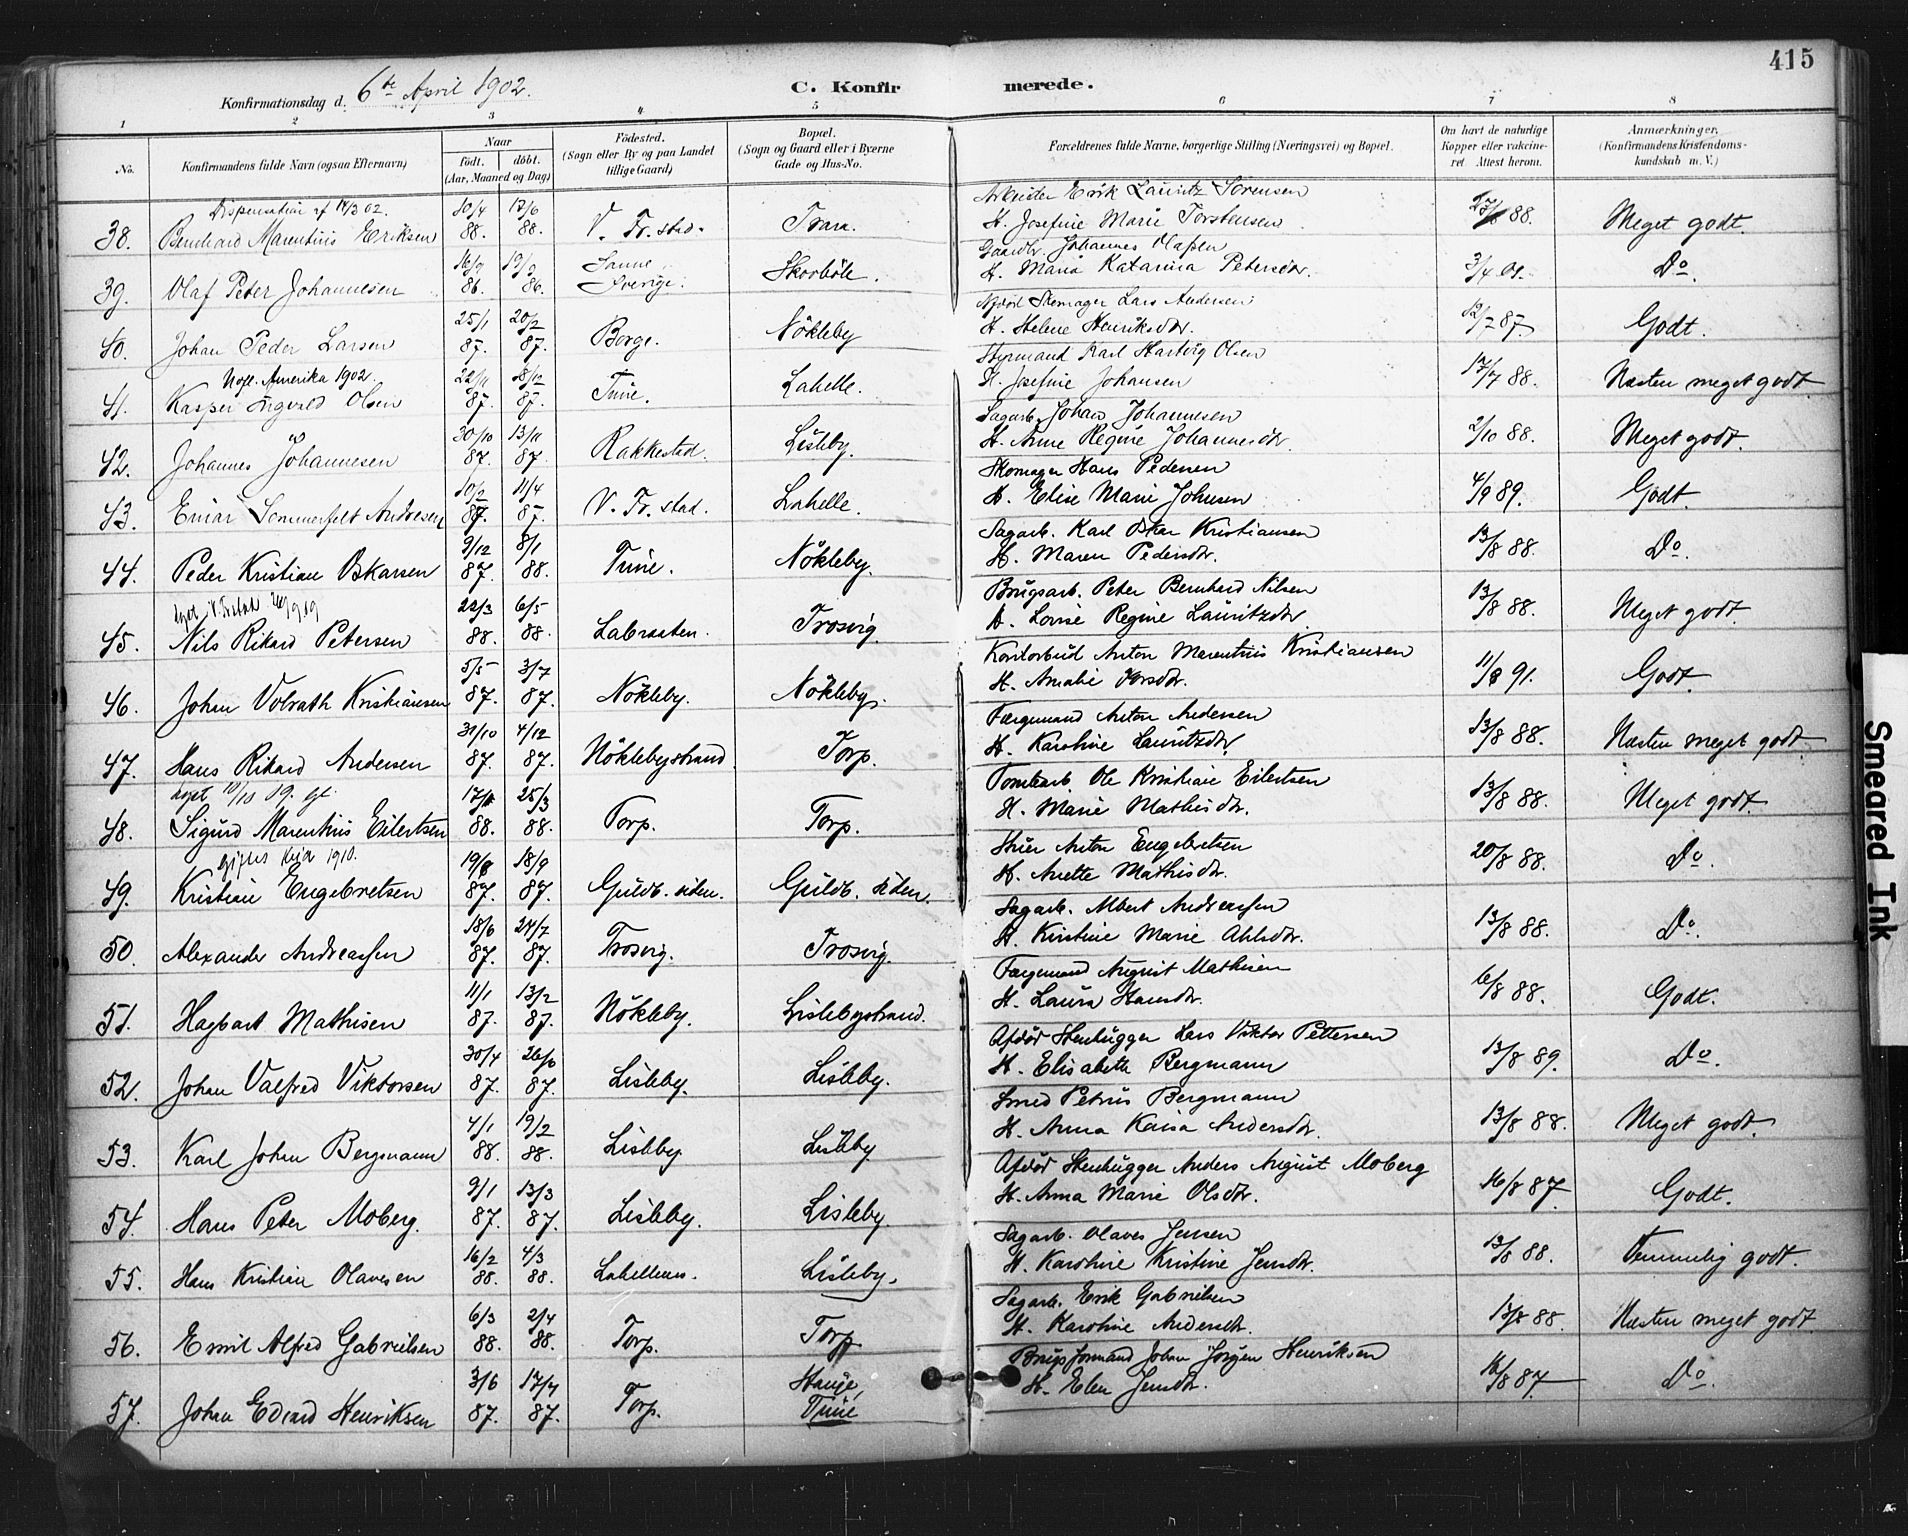 415
Konfirmationsdag d. 6te April 1902.
C. Konfirmerede.
1 2 3 4 5 6 7 8
No.
Konfirmandens fulde Navn (ogsaa Efternavn)
Naar
født. døbt.
(Aar, Maaned og Dag)
Fødested.
(Sogn eller By og paa Landet
tillige Gaard)
Bopæl.
(Sogn og Gaard eller i Byerne
Gade og Hus-No.
Forældrenes fulde Navne, borgerlige Stilling (Næringsvei) og Bopæl.
Om havt de naturlige
Kopper eller vakcine-
ret. Attest herom.
Anmærkninger.
(Konfirmandens Kristendoms-
kundskab m. V.)
Dispensation af 14/3 02. 30/4 13/6 Arbeider Erik Lauritz Sörensen
38. Bernhard Marentius Eriksen 88. 88. V. Fr.stad. Trara. H. Josefine Marie Torstensen 88. Meget godt.
16/9 19/9 Sanne Gaardbr. Johannes Olafsen
39. Olaf Peter Johannesen 86. 86. Sverige. Skovböle. H. Maria Katarina Petersdtr. 3/4 01. Do.
25/1 20/2 Afdöd Skomager Lars Andersen
40. Johan Peder Larsen 87. 87. Borge. Nökleby H. Helene Henriksdtr. 12/7 87 Godt.
Uafl. Amerika 1902. 22/11 18/12 Styrmand Karl Hartvig Olsen
41. Kasper Ingvald Olsen 87. 87. Tune. Lahelle. H. Josefine Johansen 17/7 88. Næsten meget godt
30/10 13/11 Sagarb. Johan Johannesen
42. Johannes Johannesen 87. 87 Rakkestad. Lisleby. H. Anne Regine Johannesdtr. 2/10 88. Meget godt.
10/2 11/4 Skomager Hans Pedersen
43. Einar Sommerfelt Andresen 87. 87. V. Fr. stad. Lahelle. H. Elise Marie Johnsen 4/9 89. Godt.
9/12 8/1 Sagarb. Karl Oskar Kristiansen
44. Peder Kristian Oskarsen 87. 88. Tune. Nökleby. H. Maren Pedersdtr. 13/8 88. Do.
22/3 6/5 Brugsarb. Peter Bernhard Nilsen
45. Nils Rikard Petersen 88. 88. Labraaten. Trosvig. H. Lovise Regine Lauritzdtr. 13/8 88. Meget godt.
5/5 3/7 Kontorbud Anton Marentius Kristiansen
46. Johan Volrath Kristiansen 87. 87. Nökleby. Nökleby. H. Amalie Iversdtr. 11/8 91. Godt.
31/10 4/12 Færgemand Anton Andersen
47. Hans Rikard Andersen 87. 87. Nöklebystrand Torp. H. Karoline Lauritzdtr. 13/8 88. Næsten meget godt
10/10 09. 25/3 Tomtearb. Ole Kristian Eilertsen
48. Sigurd Marentius Eilertsen 88. 88. Torp. Torp. H. Marie Mathisdtr. 13/8 88. Meget godt
1910. 18/9 Anton Engebretsen
49. Kristian Engebretsen 87. 87. Guldb. siden. Guldb. siden. H. Anette Mathisdtr. 20/8 88. Do.
18/6 24/7 Sagarb. Albert Andreassen
50. Alexander Andreassen 87. 87. Trosvig. Trosvig. H. Kirstine Marie Ahlsdtr. 13/8 88. Do.
11/1 13/2 Færgemand August Mathisen
51. Hagbart Mathisen 87. 87. Nökleby. Lislebystrand. H. Laura Hansdtr. 6/8 88. Godt.
30/4 26/6 Afdöd Stenhugger Lars Viktor Pettersen
52. Johan Valfred Viktorsen 87. 87. Lisleby. Lisleby. H. Elisabeth Bergmann 13/8 89. Do.
4/1 19/2 Smed Petrus Bergmann
53. Karl Johan Bergmann 88. 88. Lisleby. Lisleby H. Anna Kaisa Andersdtr. 13/8 88. Meget godt.
9/1 13/3 Afdöd Stenhugger Anders August Moberg
54. Hans Peter Moberg. 87. 87. Lisleby. Lisleby. H. Anna Marie Olsdtr. 16/8 87 Godt.
16/2 4/3 Sagarb. Olaves Jensen
55. Hans Kristian Olavesen 88. 88. Lahellen. Lisleby. H. Karoline Kristine Jensdtr. 13/8 88. Temmelig godt.
6/3 2/4 Sagarb. Erik Gabrielsen
56. Emil Alfred Gabrielsen 88. 88. Torp. Torp H. Karoline Andersdtr. 13/8 88. Næsten meget godt.
3/6 17/7 Hauge, Brugsformand Johan Jörgen Henriksen
57. Johan Edvard Henriksen 87. 87. Torp. Tune H. Elen Jensdtr. 16/8 87 Do.
Smeared Ink